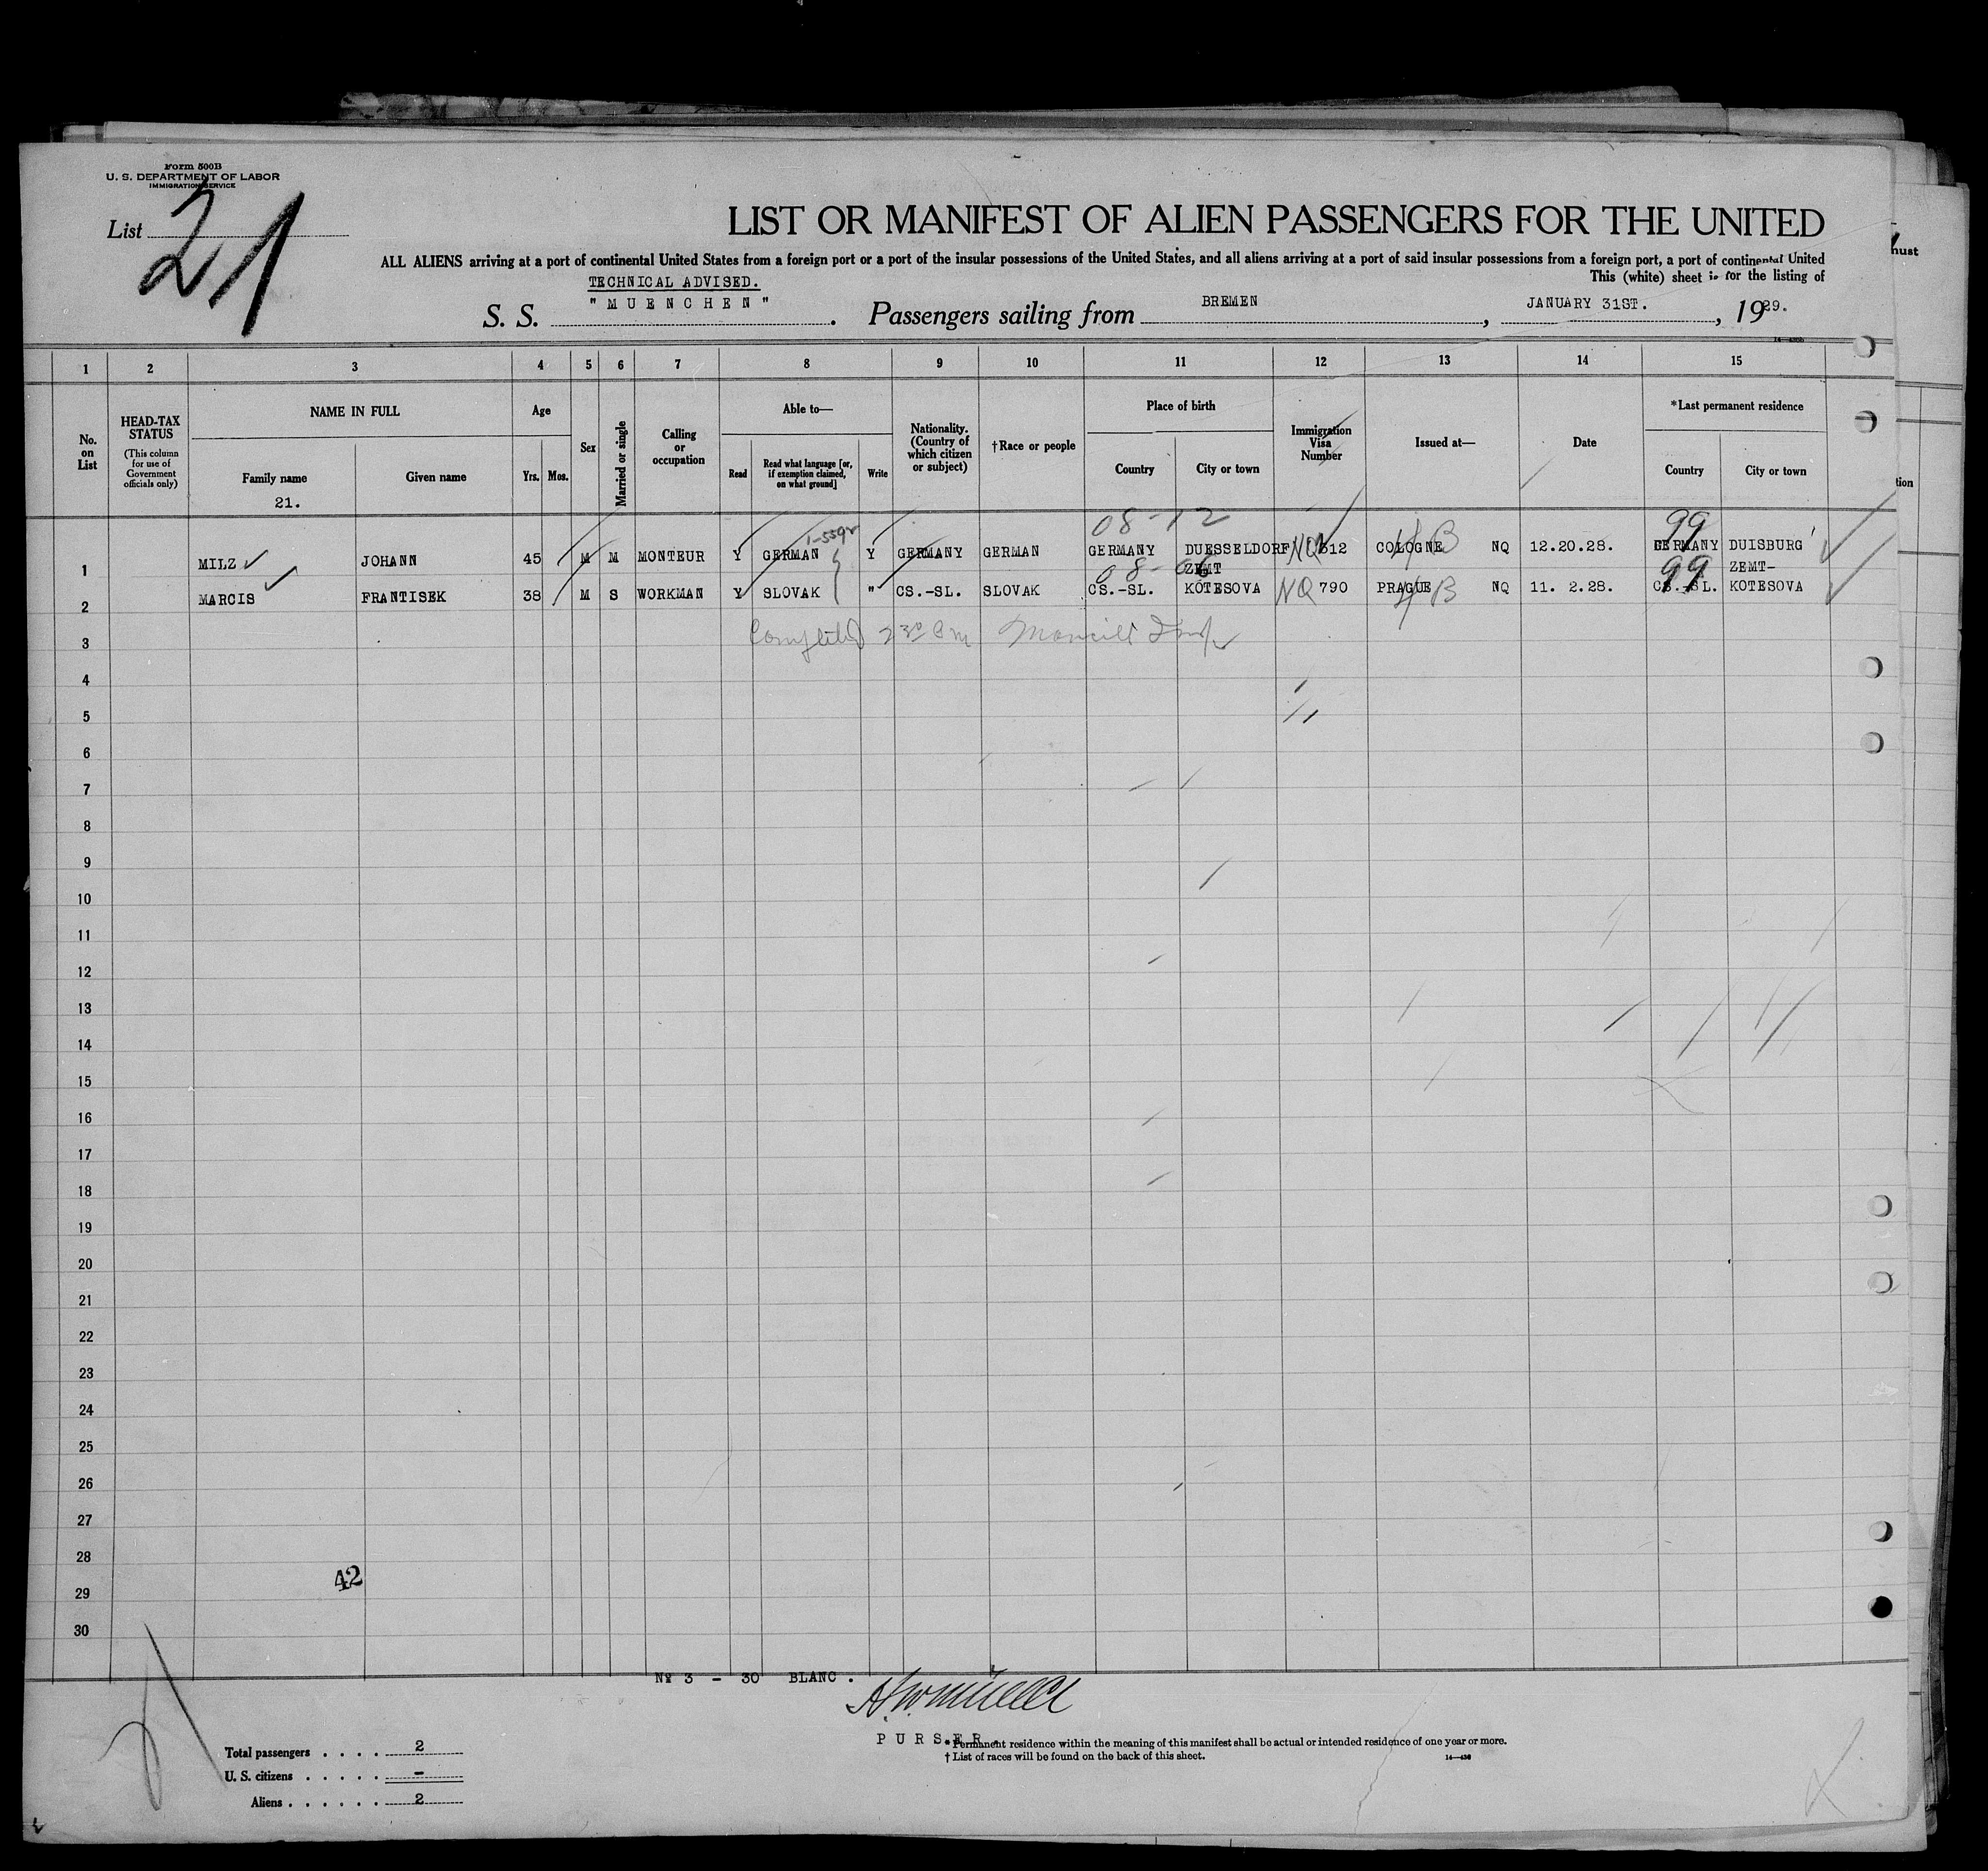 Form 500B
U. S. DEPARTMENT OF LABOR
IMMIGRATION SERVICE
List 21
LIST OR MANIFEST OF ALIEN PASSENGERS FOR THE UNITED
ALL ALIENS arriving at a port of continental United States from a foreign port or a port of the insular possessions of the United States, and all aliens arriving at a port of said insular possessions from a foreign port, a port of continental United
This (white) sheet is for the listing of
TECHNICAL ADVISED.
S. S. "MUENCHEN". Passengers sailing from BREMEN, JANUARY 31ST., 1929.
1 2 3 4 5 6 7 8 9 10 11 12 13 14 15
No. on List
HEAD-TAX STATUS
(This column for use of Government officials only)
NAME IN FULL
Family name
21.
Given name
Age
Yrs. Mos.
Sex
Married or single
Calling or occupation
Able to—
Read
Read what language [or, if exemption claimed, on what ground]
Write
Nationality. (Country of which citizen or subject)
†Race or people
Place of birth
Country
City or town
Immigration Visa Number
Issued at—
Date
*Last permanent residence
Country
City or town
08-12 99
1 MILZ JOHANN 45 M M MONTEUR Y GERMAN Y GERMANY GERMAN GERMANY DUESSELDORF NQ 512 COLOGNE NQ 12.20.28. GERMANY DUISBURG
08-06 ZEMT 99 ZEMT-
2 MARCIS FRANTISEK 38 M S WORKMAN Y SLOVAK " CS.-SL. SLOVAK CS.-SL. KOTESOVA NQ 790 PRAGUE NQ 11. 2.28. CS.-SL. KOTESOVA
3 Completed
4
5
6
7
8
9
10
11
12
13
14
15
16
17
18
19
20
21
22
23
24
25
26
27
28
42
29
30
No 3 - 30 BLANC.
PURSER
* Permanent residence within the meaning of this manifest shall be actual or intended residence of one year or more.
† List of races will be found on the back of this sheet.
14—436
Total passengers . . . . 2
U. S. citizens . . . . . –
Aliens . . . . . . 2